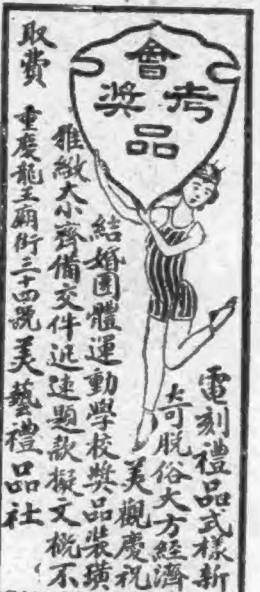 會考獎品
電刻禮品式樣新
奇脫俗大方經濟
美觀慶祝
結婚團體運動學校獎品裝璜
雅緻大小齊備交件迅速題款擬文概不
取費 重慶龍王廟街三十四號美藝禮品社